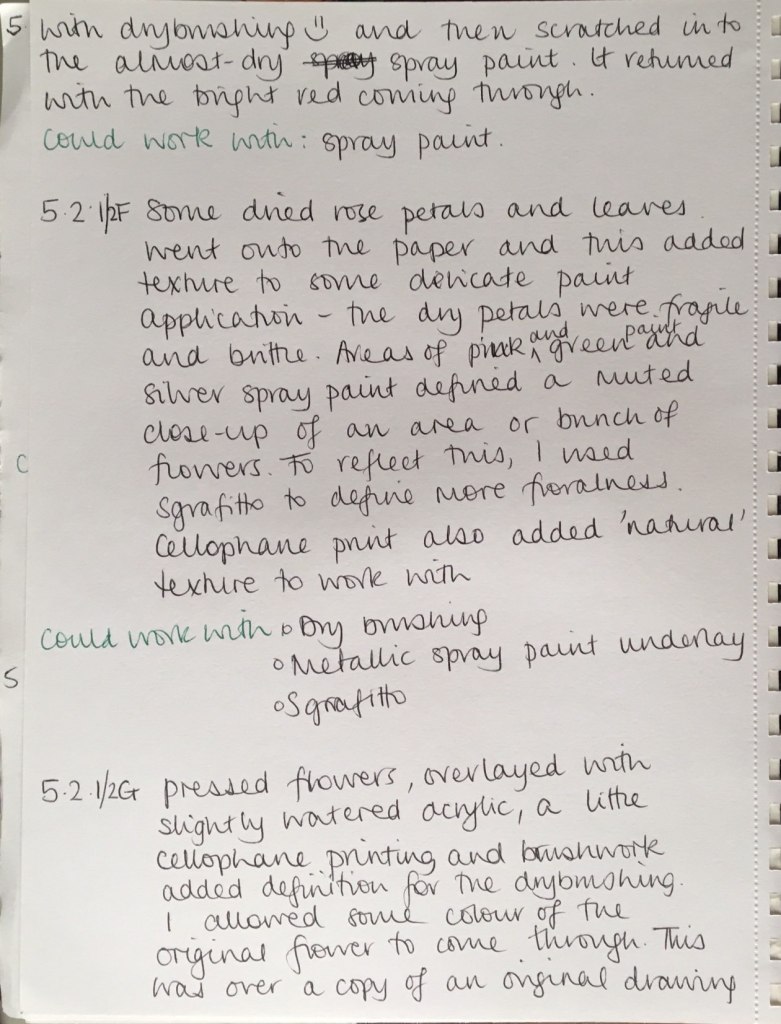 5 with drybrushing ☺ and then scratched in to
the almost-dry spray spray paint. It returned
with the bright red coming through.
Could work with: spray paint.
5.2.1/2F Some dried rose petals and leaves
went onto the paper and this added
texture to some delicate paint
application - the dry petals were fragile
and brittle. Areas of pink and green paint and
silver spray paint defined a muted
close-up of an area or bunch of
flowers. To reflect this, I used
C
Sgrafitto to define more floralness.
Cellophane print also added 'natural'
texture to work with
Could work with o Dry brushing
o Metallic spray paint underlay
S
o Sgrafitto
5.2.1/2G pressed flowers, overlayed with
slightly watered acrylic, a little
cellophane printing and brushwork
added definition for the drybrushing.
I allowed some colour of the
original flower to come through. This
was over a copy of an original drawing